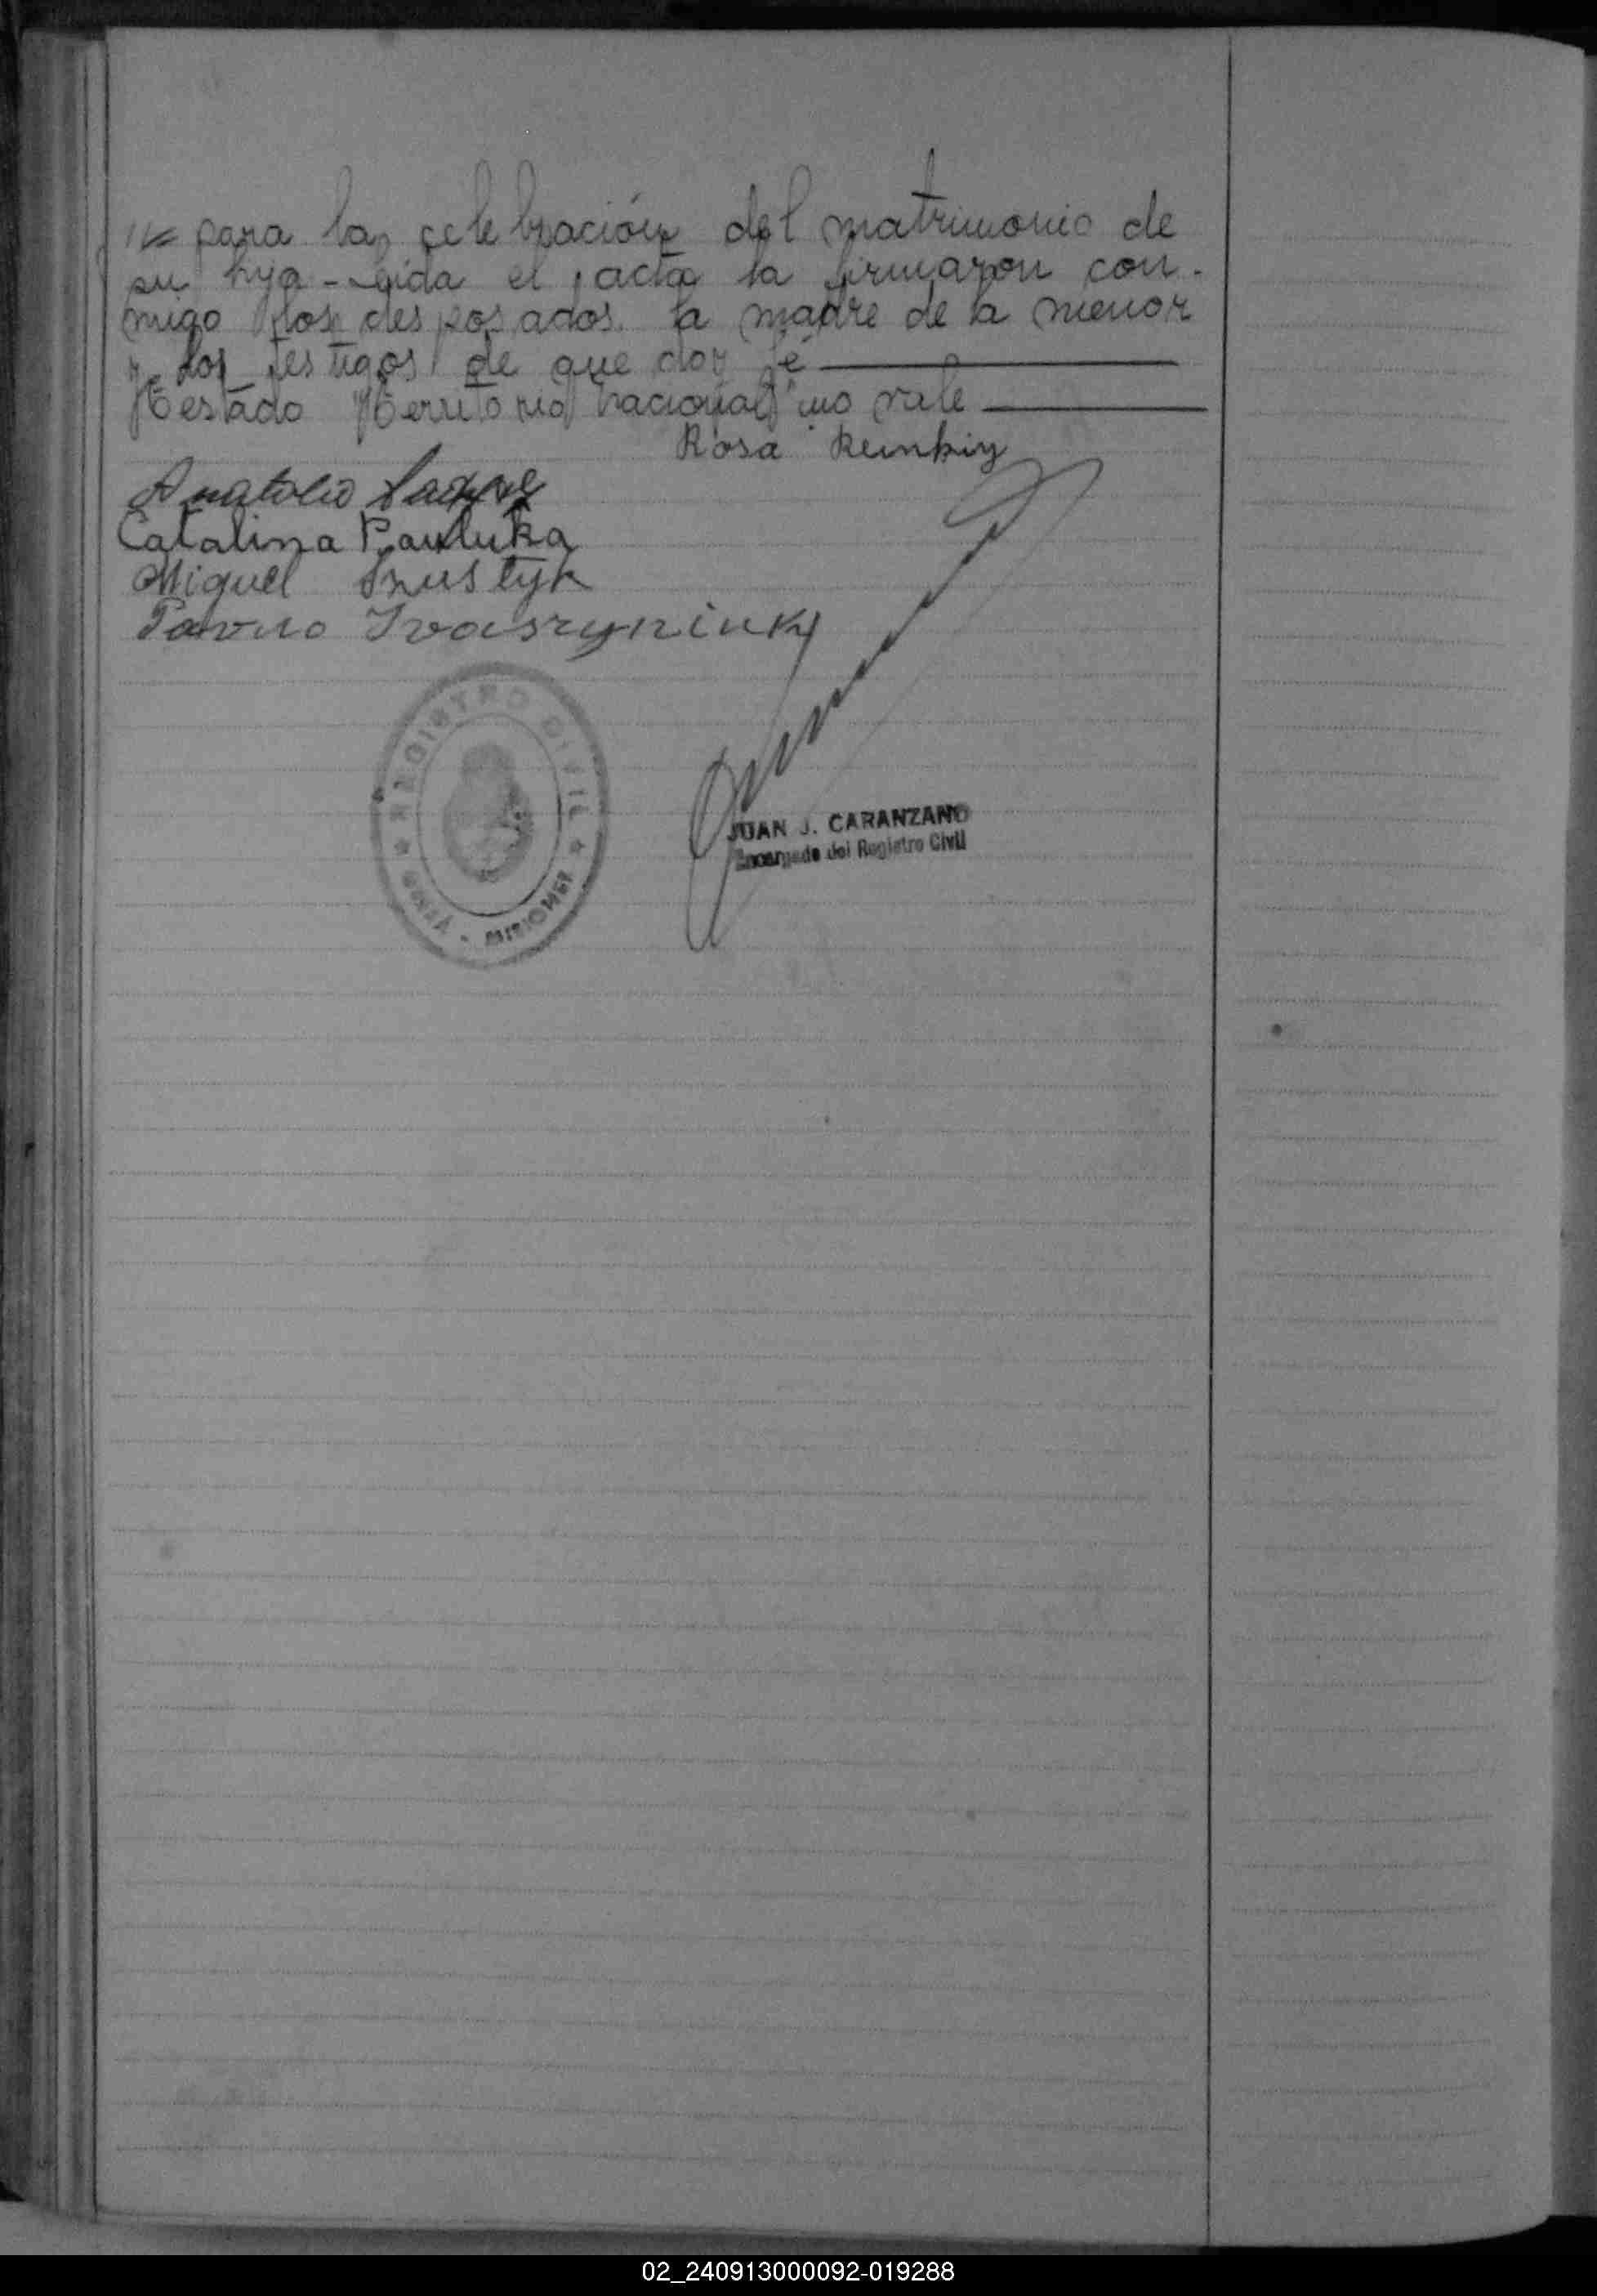 para la celebración del matrimonio de
su hija - Leida el acta la firmaron con-
migo los desposados la madre de la menor
y los testigos de que doy fé
Testado "Territorio Nacional" no vale
Rosa
Anatolio
Catalina Pauluka
Miguel Szustyk
REGISTRO CIVIL
MISIONES
JUAN J. CARANZANO
Encargado del Registro Civil
02_240913000092-019288